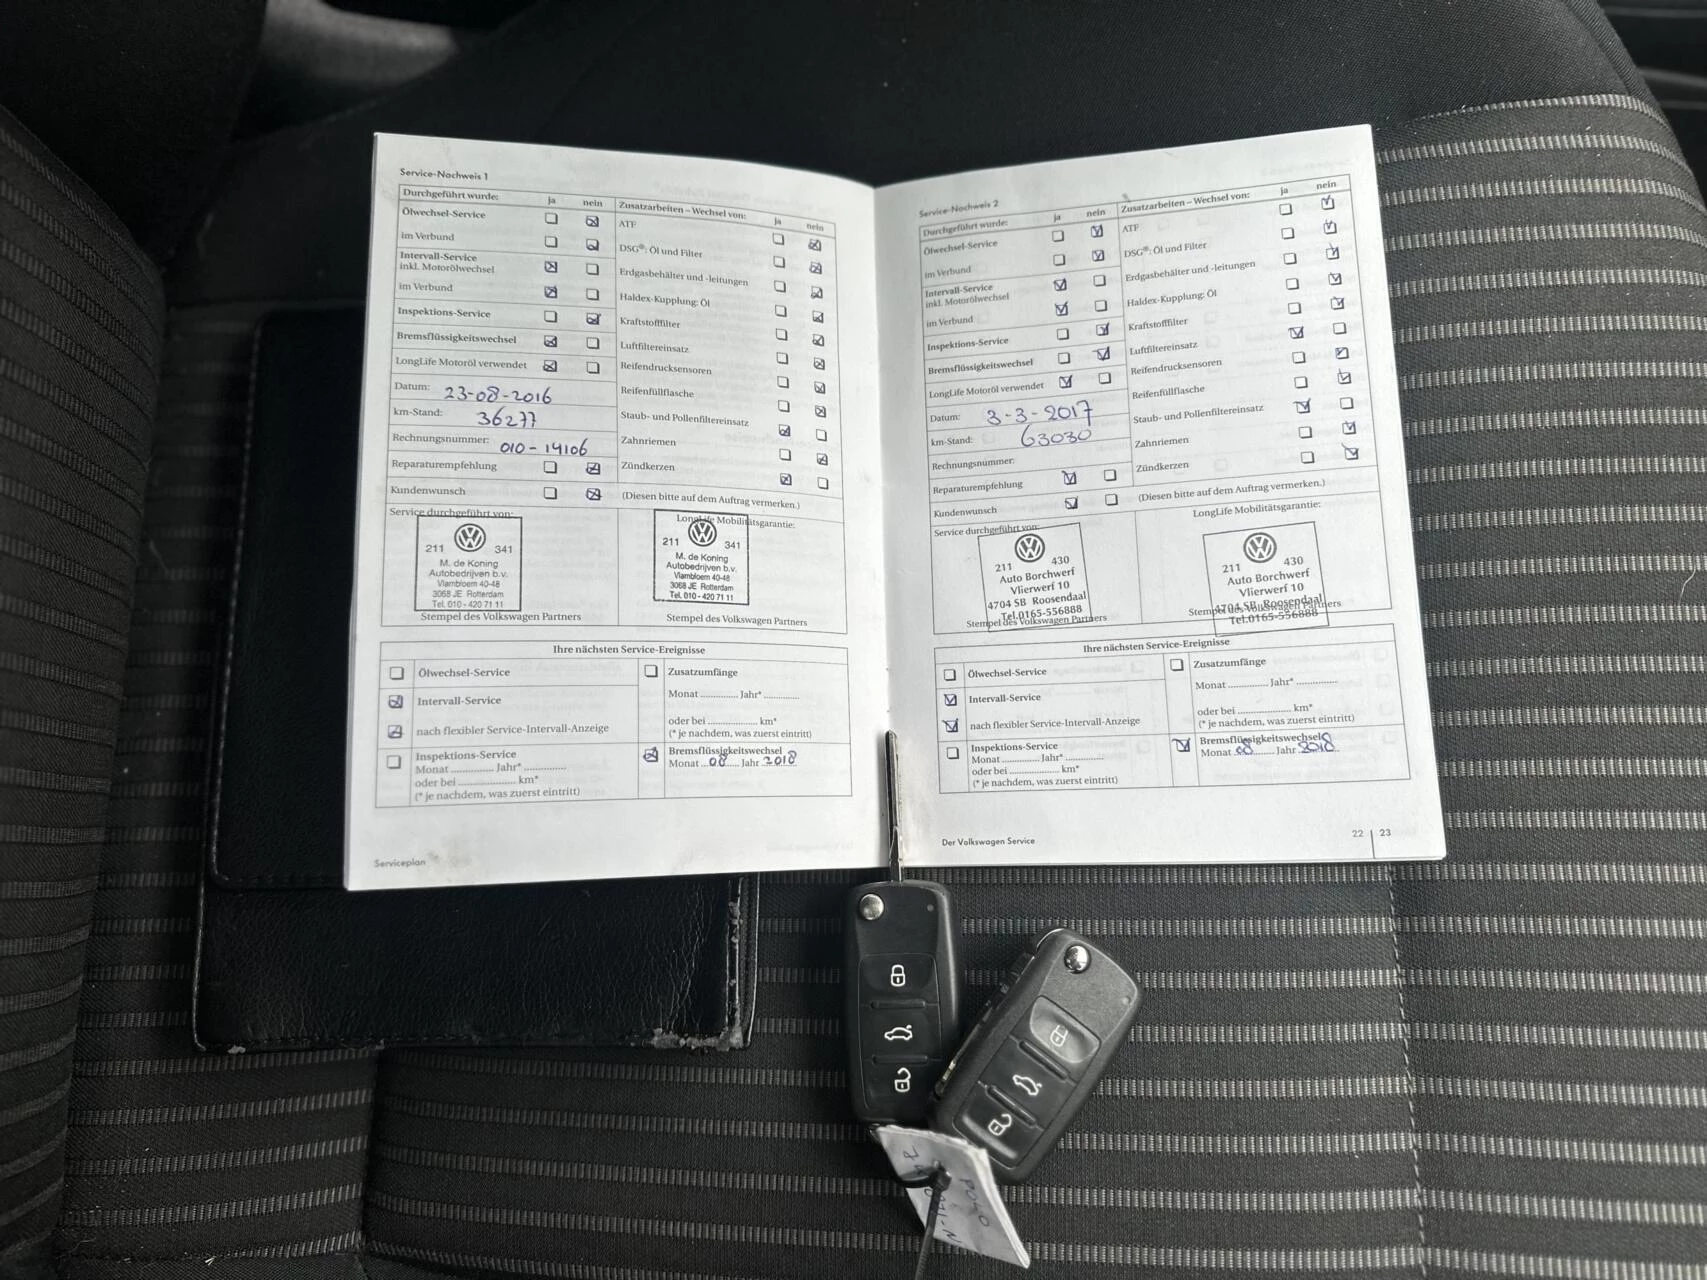 Service-Nachweis 1
Durchgeführt wurde: ja nein
Ölwechsel-Service
im Verbund
Intervall-Service
inkl. Motorölwechsel
im Verbund
Inspektions-Service
Bremsflüssigkeitswechsel
LongLife Motoröl verwendet
Datum: 23-08-2016
km-Stand: 36277
Rechnungsnummer: 010-14106
Reparaturempfehlung
Kundenwunsch
Zusatzarbeiten – Wechsel von: ja nein
ATF
DSG®: Öl und Filter
Erdgasbehälter und -leitungen
Haldex-Kupplung: Öl
Kraftstofffilter
Luftfiltereinsatz
Reifendrucksensoren
Reifenfüllflasche
Staub- und Pollenfiltereinsatz
Zahnriemen
Zündkerzen
(Diesen bitte auf dem Auftrag vermerken.)
Service durchgeführt von:
211 341
M. de Koning
Autobedrijven b.v.
Vlambloem 40-48
3068 JE Rotterdam
Tel. 010 - 420 71 11
Stempel des Volkswagen Partners
LongLife Mobilitätsgarantie:
211 341
M. de Koning
Autobedrijven b.v.
Vlambloem 40-48
3068 JE Rotterdam
Tel. 010 - 420 71 11
Stempel des Volkswagen Partners
Ihre nächsten Service-Ereignisse
Ölwechsel-Service
Intervall-Service
nach flexibler Service-Intervall-Anzeige
Inspektions-Service
Monat .............. Jahr* ..............
oder bei .................... km*
(* je nachdem, was zuerst eintritt)
Zusatzumfänge
Monat .............. Jahr* ..............
oder bei .................... km*
(* je nachdem, was zuerst eintritt)
Bremsflüssigkeitswechsel
Monat 08 Jahr 2018
Serviceplan
Service-Nachweis 2
Durchgeführt wurde: ja nein
Ölwechsel-Service
im Verbund
Intervall-Service
inkl. Motorölwechsel
im Verbund
Inspektions-Service
Bremsflüssigkeitswechsel
LongLife Motoröl verwendet
Datum: 3-3-2017
km-Stand: 63030
Rechnungsnummer:
Reparaturempfehlung
Kundenwunsch
Zusatzarbeiten – Wechsel von: ja nein
ATF
DSG®: Öl und Filter
Erdgasbehälter und -leitungen
Haldex-Kupplung: Öl
Kraftstofffilter
Luftfiltereinsatz
Reifendrucksensoren
Reifenfüllflasche
Staub- und Pollenfiltereinsatz
Zahnriemen
Zündkerzen
(Diesen bitte auf dem Auftrag vermerken.)
Service durchgeführt von:
211 430
Auto Borchwerf
Vlierwerf 10
4704 SB Roosendaal
Tel.0165-556888
Stempel des Volkswagen Partners
LongLife Mobilitätsgarantie:
211 430
Auto Borchwerf
Vlierwerf 10
4704 SB Roosendaal
Tel.0165-556888
Stempel des Volkswagen Partners
Ihre nächsten Service-Ereignisse
Ölwechsel-Service
Intervall-Service
nach flexibler Service-Intervall-Anzeige
Inspektions-Service
Monat .............. Jahr* ..............
oder bei .................... km*
(* je nachdem, was zuerst eintritt)
Zusatzumfänge
Monat .............. Jahr* ..............
oder bei .................... km*
(* je nachdem, was zuerst eintritt)
Bremsflüssigkeitswechsel
Monat 08 Jahr 2018
Der Volkswagen Service
22 | 23
POLO